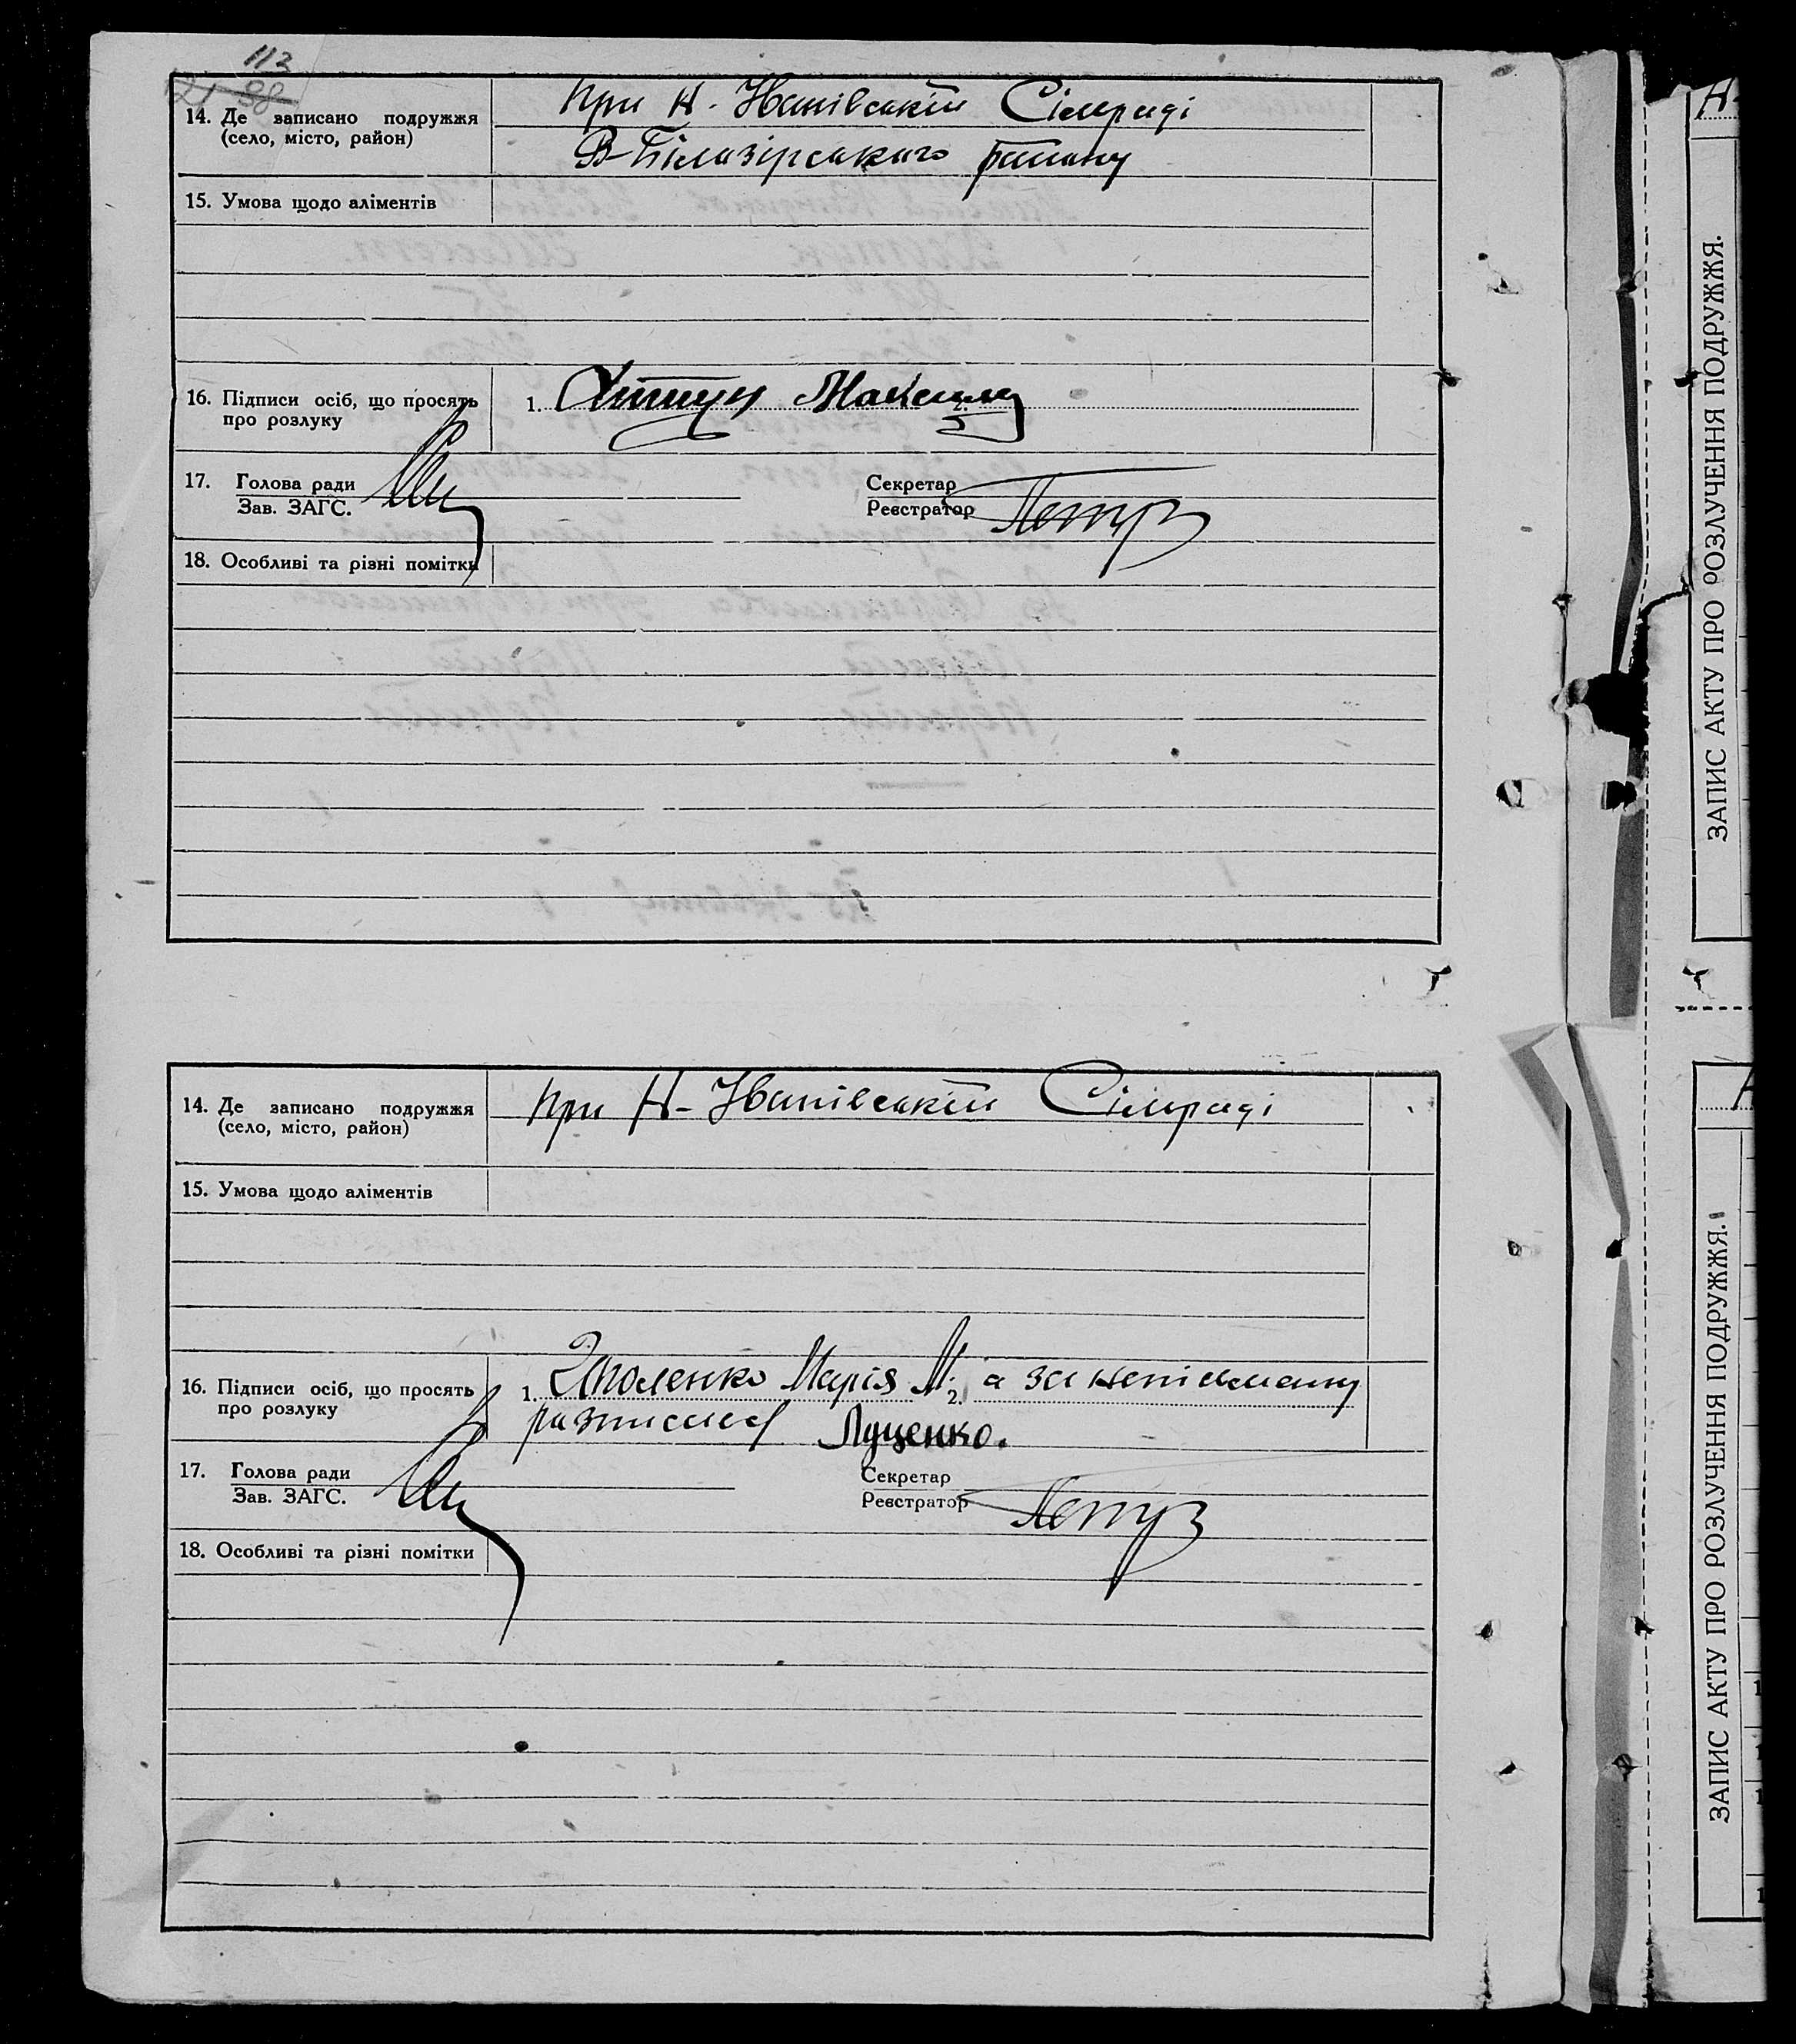 112
121 98
14. Де записано подружжя (село, місто, район)
При Н-Іванівській Сільраді
В-Білазірського району
15. Умова щодо аліментів
16. Підписи осіб, що просять про розлуку
1. Хитун Максим 2.
17. Голова ради
Зав. ЗАГС.
Секретар
Реєстратор
18. Особливі та різні помітки
14. Де записано подружжя (село, місто, район)
при Н-Іванівській Сільраді
15. Умова щодо аліментів
16. Підписи осіб, що просять про розлуку
1. Марія М. 2. а за неписьменну
розписався Луценко.
17. Голова ради
Зав. ЗАГС.
Секретар
Реєстратор
18. Особливі та різні помітки
ЗАПИС АКТУ ПРО РОЗЛУЧЕННЯ ПОДРУЖЖЯ.
ЗАПИС АКТУ ПРО РОЗЛУЧЕННЯ ПОДРУЖЖЯ.